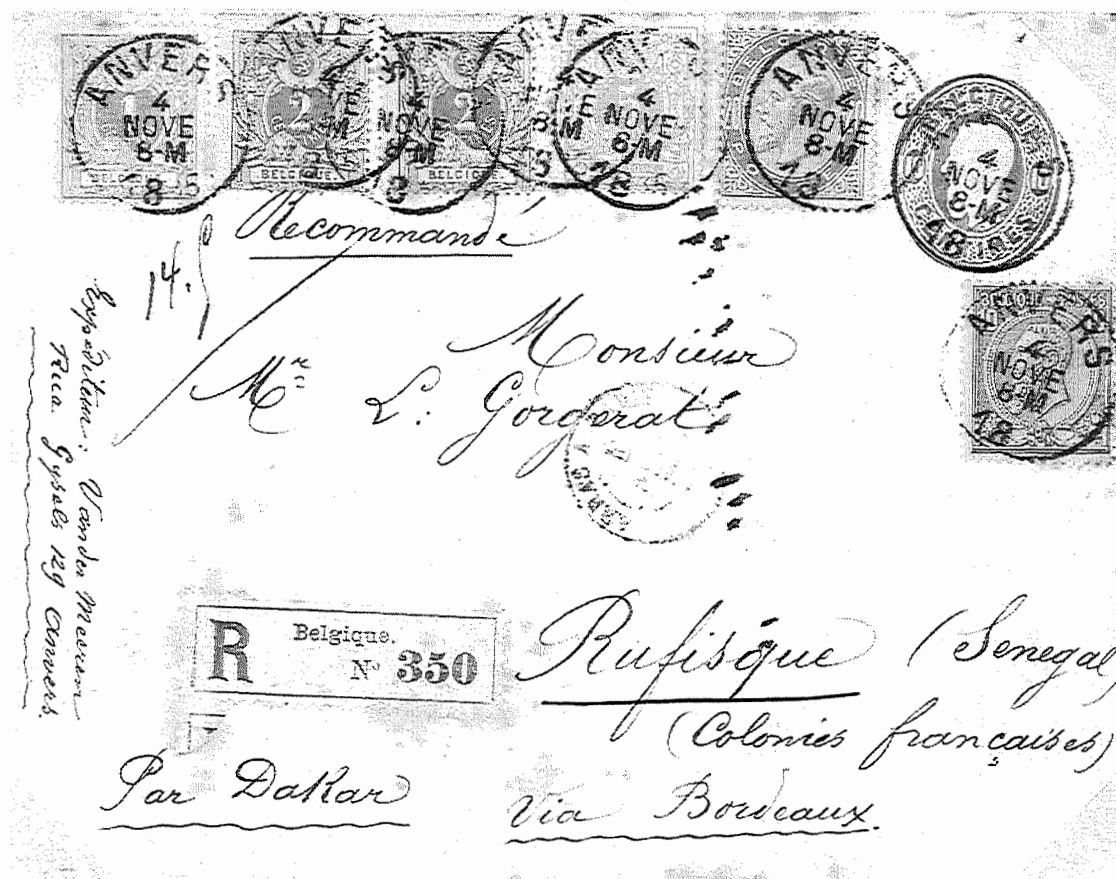 ANVERS
4
NOVE
8-M
BELGIQUE
2
BELGIQUE
2
BELGIQUE
ANVERS
4
NOVE
8-M
18
ANVERS
4
NOVE
8-M
18
4
NOVE
8-M
ANVERS
4
NOVE
8-M
18
Recommandé
14.
Monsieur
Mr L. Gorgerat
Expéditeur: Vander
Gysels 129 Anvers.
R Belgique.
No 350
Rufisque (Senegal)
(Colonies françaises)
Par Dakar via Bordeaux.